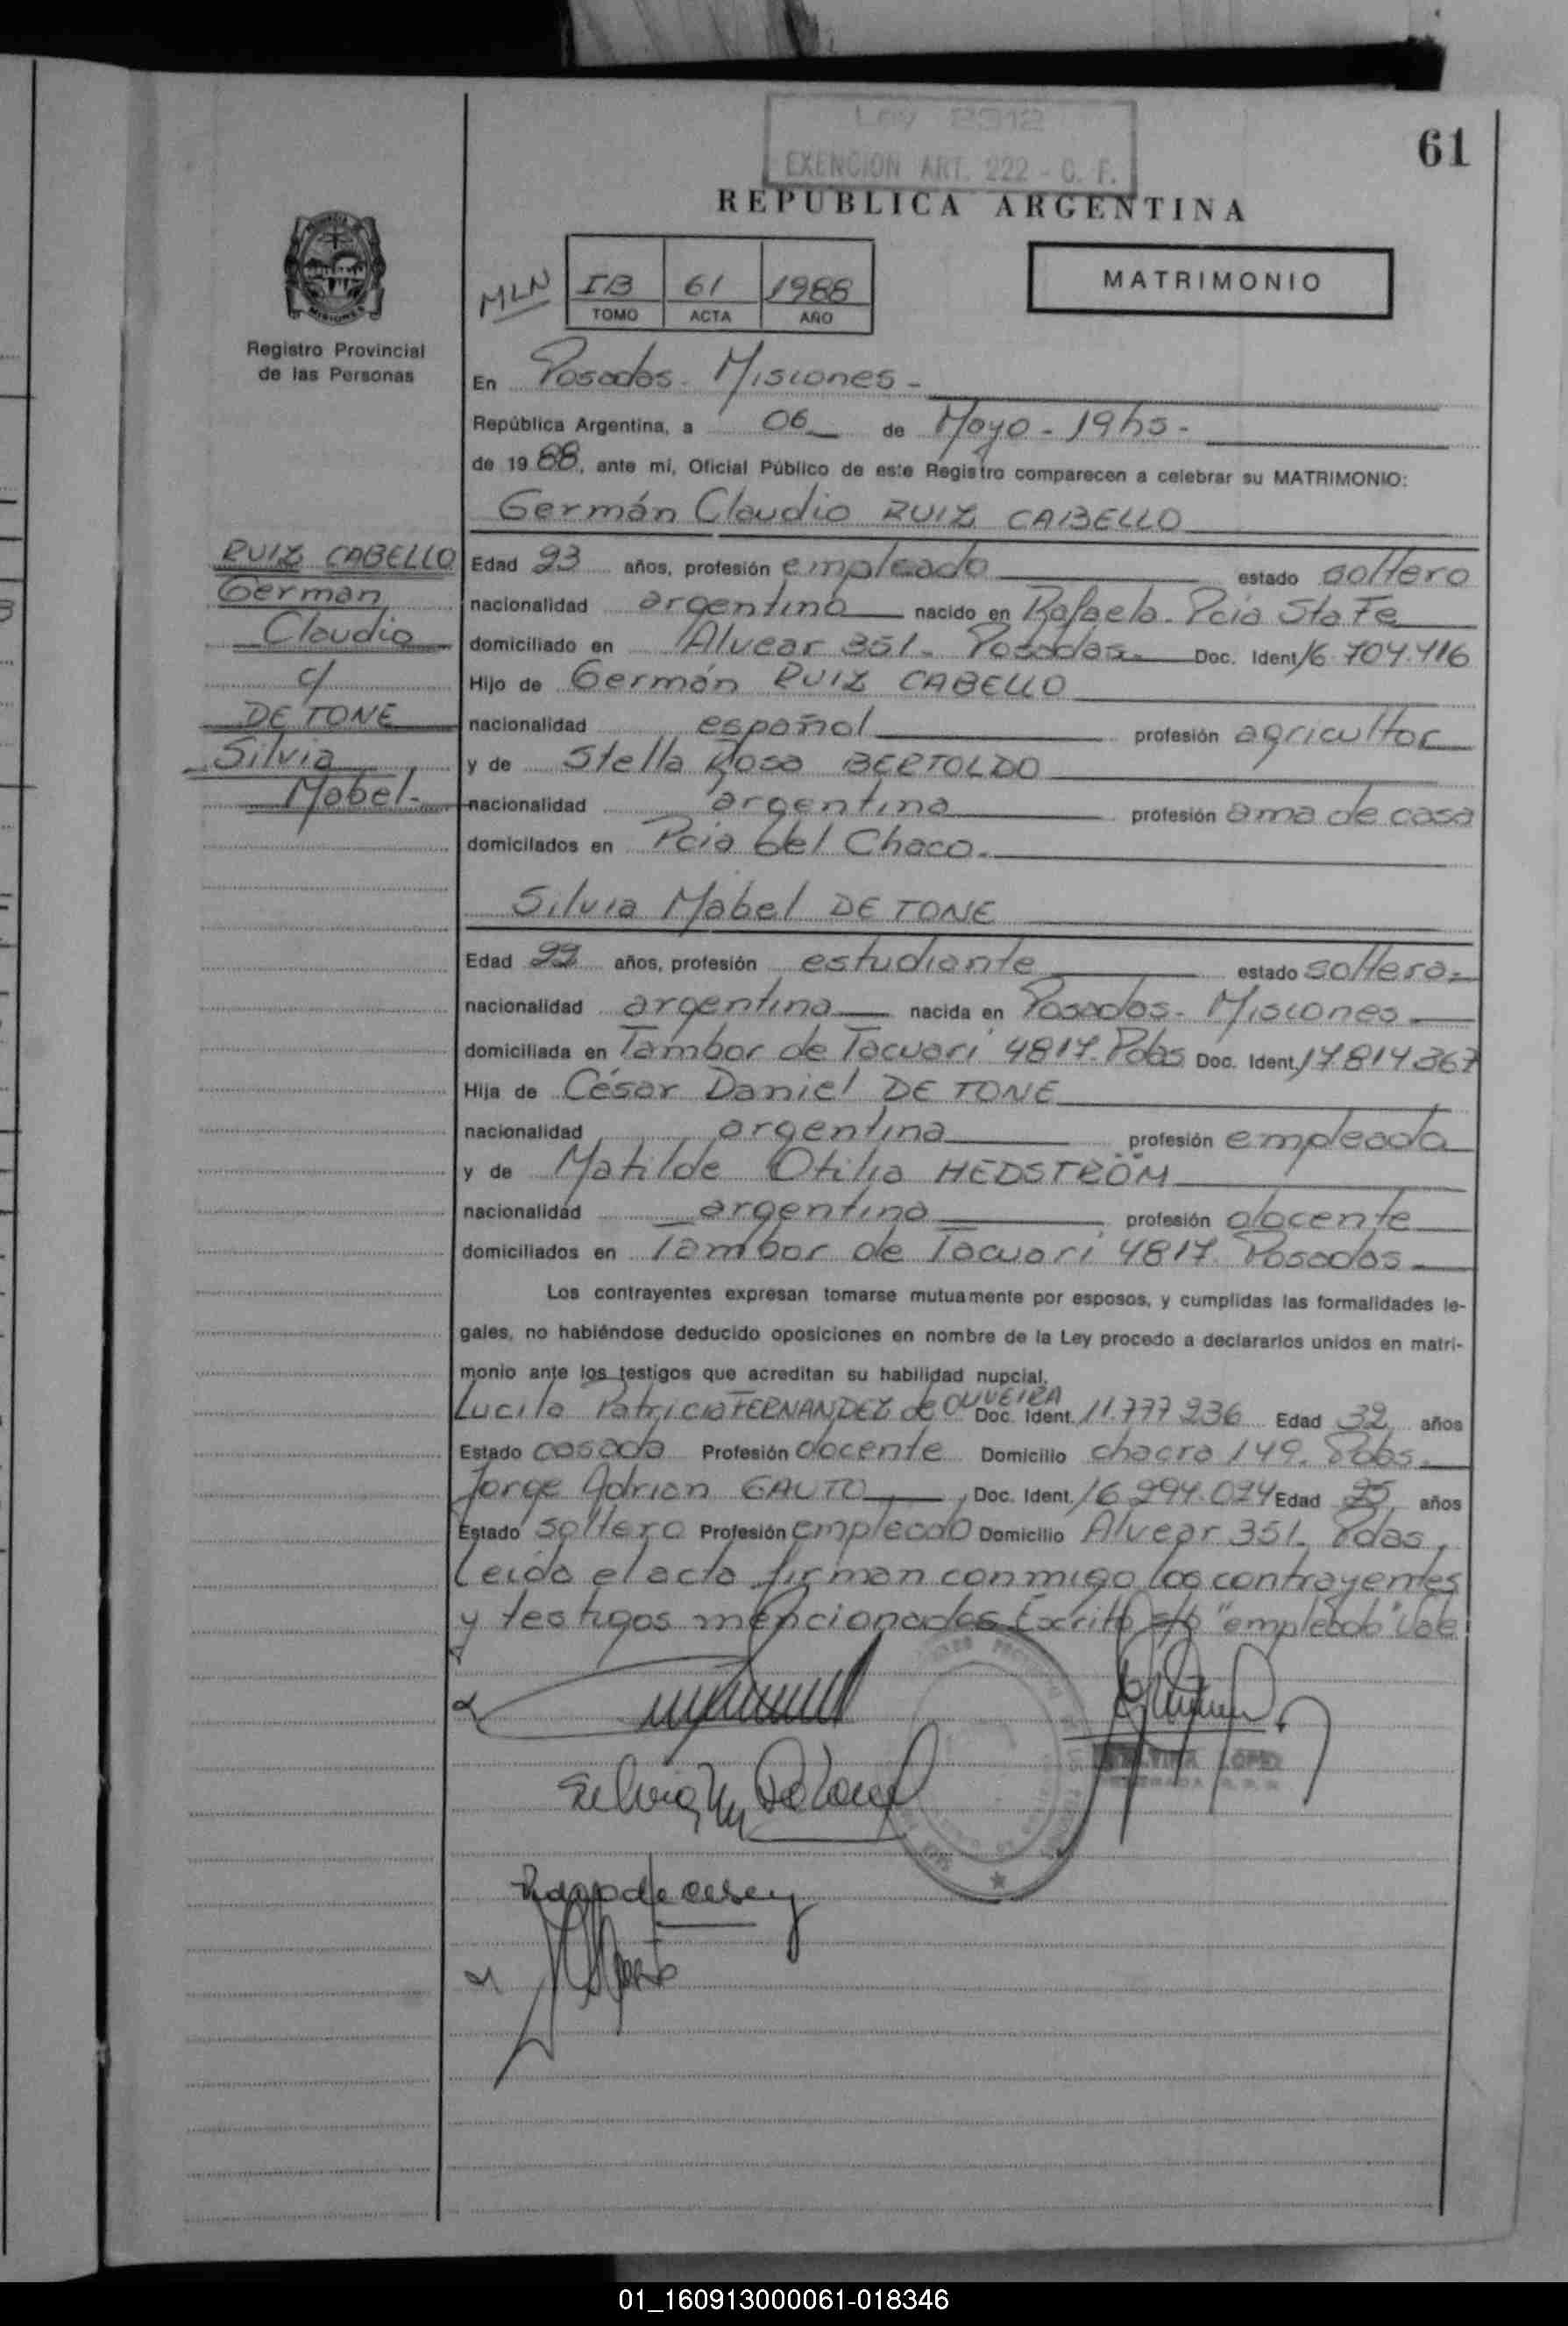 Ley 2912
EXENCION ART. 222 - C. F.
61
REPUBLICA ARGENTINA
MLN
IB 61 1988
TOMO ACTA AÑO
MATRIMONIO
MISIONES
Registro Provincial
de las Personas
En Posadas - Misiones -
República Argentina, a 06 de Mayo - 19hs -
de 19 88, ante mí, Oficial Público de este Registro comparecen a celebrar su MATRIMONIO:
Germán Claudio RUIZ CABELLO
RUIZ CABELLO
German
Claudio
c/
DE TONE
Silvia
Mabel-
Edad 23 años, profesión empleado estado soltero
nacionalidad argentino nacido en Rafaela - Pcia Sta Fe
domiciliado en Alvear 351 - Posadas - Doc. Ident. 16 704.416
Hijo de Germán RUIZ CABELLO
nacionalidad español profesión agricultor
y de Stella Rosa BERTOLDO
nacionalidad argentina profesión ama de casa
domicilados en Pcia del Chaco -
Silvia Mabel DE TONE
Edad 22 años, profesión estudiante estado soltera -
nacionalidad argentina nacida en Posadas - Misiones
domiciliada en Tambor de Tacuari 4817 - Pdas Doc. Ident. 17 814 367
Hija de César Daniel DE TONE
nacionalidad argentina profesión empleado
y de Matilde Otilia HEDSTRÖM
nacionalidad argentina profesión docente
domiciliados en Tambor de Tacuari 4817 - Posadas
Los contrayentes expresan tomarse mutuamente por esposos, y cumplidas las formalidades le-
gales, no habiéndose deducido oposiciones en nombre de la Ley procedo a declararlos unidos en matri-
monio ante los testigos que acreditan su habilidad nupcial.
Lucila Patricia FERNANDEZ de OLIVEIRA Doc. Ident. 11.777 236 Edad 32 años
Estado casada Profesión docente Domicilio chacra 149. Pdas.
Jorge Adrian GAUTO, Doc. Ident. 16 294.024 Edad 25 años
Estado soltero Profesión empleado Domicilio Alvear 351 - Pdas,
Leida el acta firman conmigo los contrayentes
y testigos mencionados Escrito s/b "empleado" Vale
Silvia M De Tone
LOPEZ
01_160913000061-018346